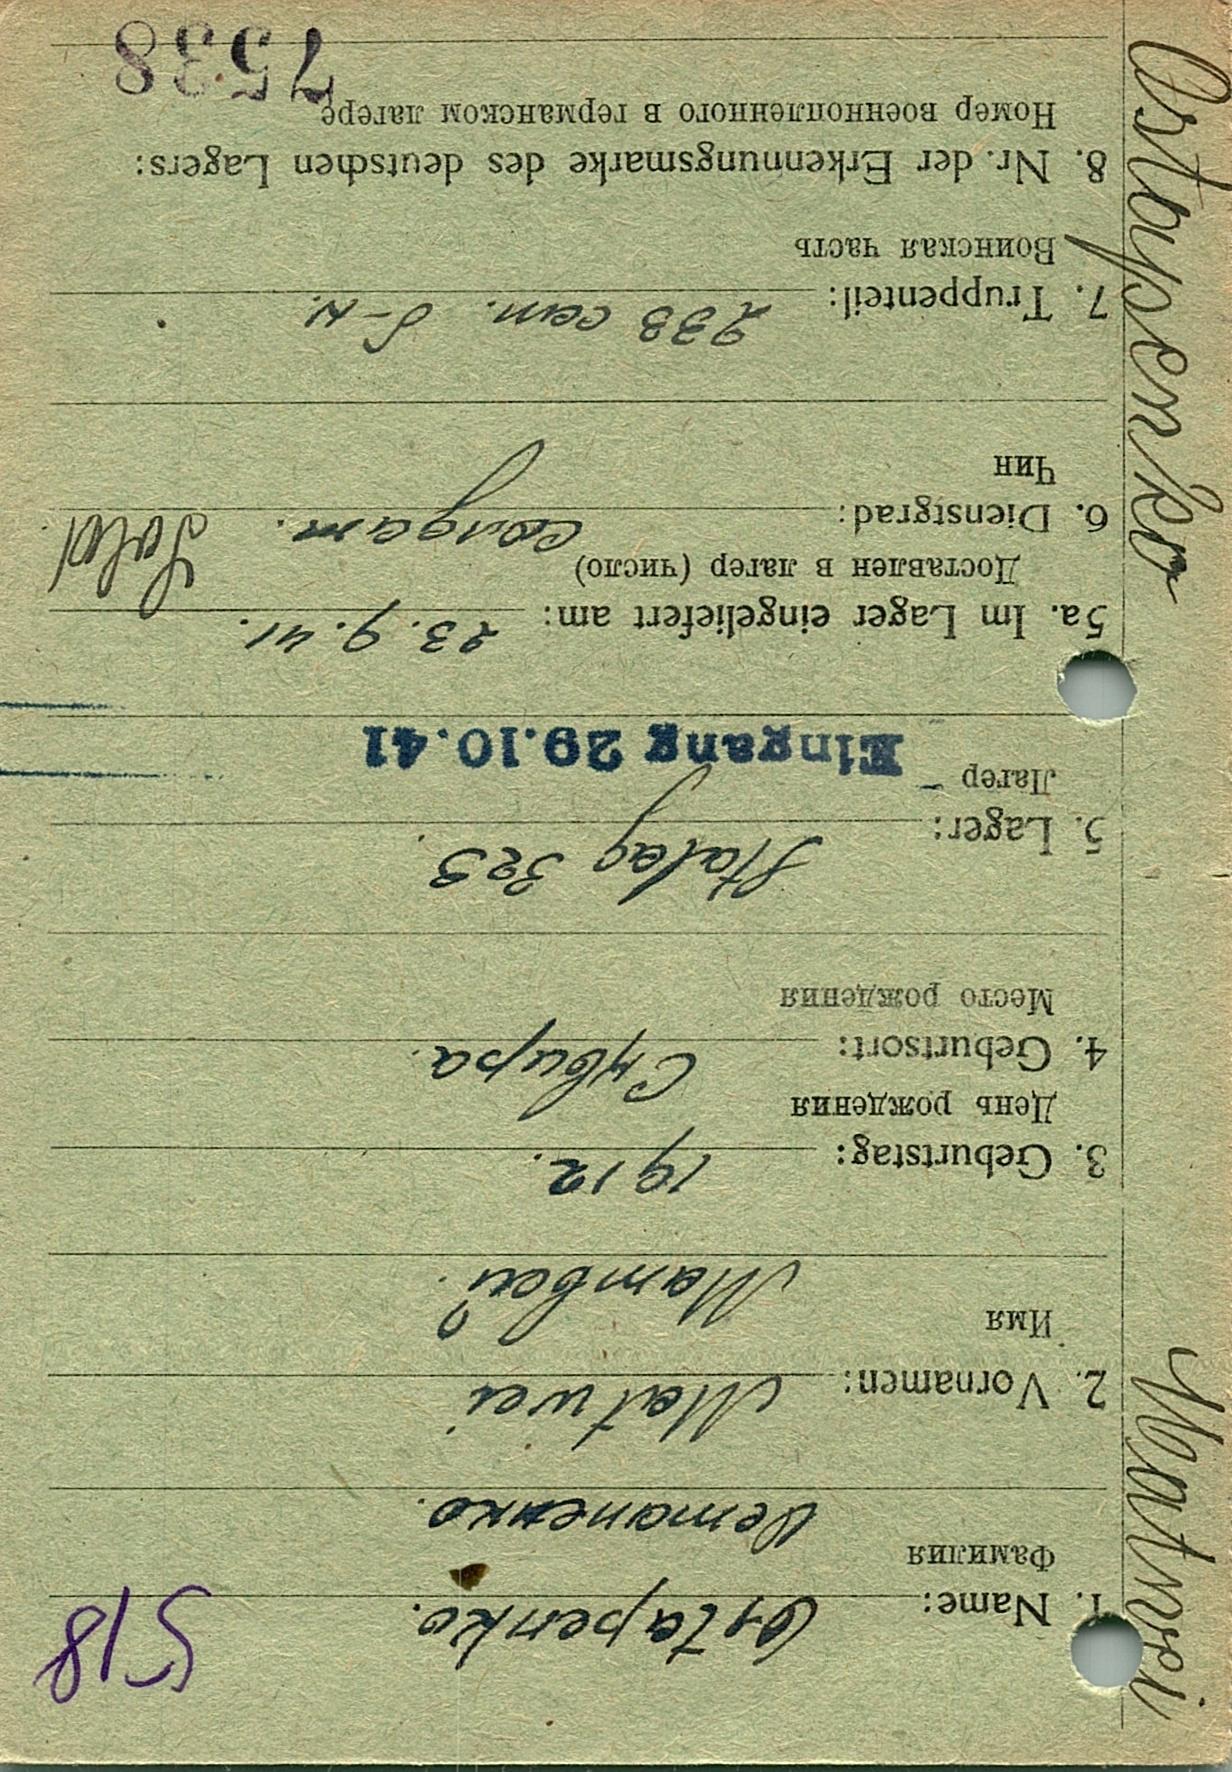 518
1. Name: Ostapenko.
Фамилия
Остапенко.
2. Vornamen: Matwei
Имя
Матвей.
3. Geburtstag: 1912.
День рождения
4. Geburtsort: Сквира.
Место рождения
5. Lager: Stalag 325.
Лагер
Eingang 29.10.41
5a. Im Lager eingeliefert am: 23.9.41.
Доставлен в лагер (число)
6. Dienstgrad: солдат. Sold
Чин
7. Truppenteil: сап. б-н.
Воинская часть
8. Nr. der Erkennungsmarke des deutschen Lagers:
Номер военнопленного в германском лагере
7538
Ostapenko Matwei